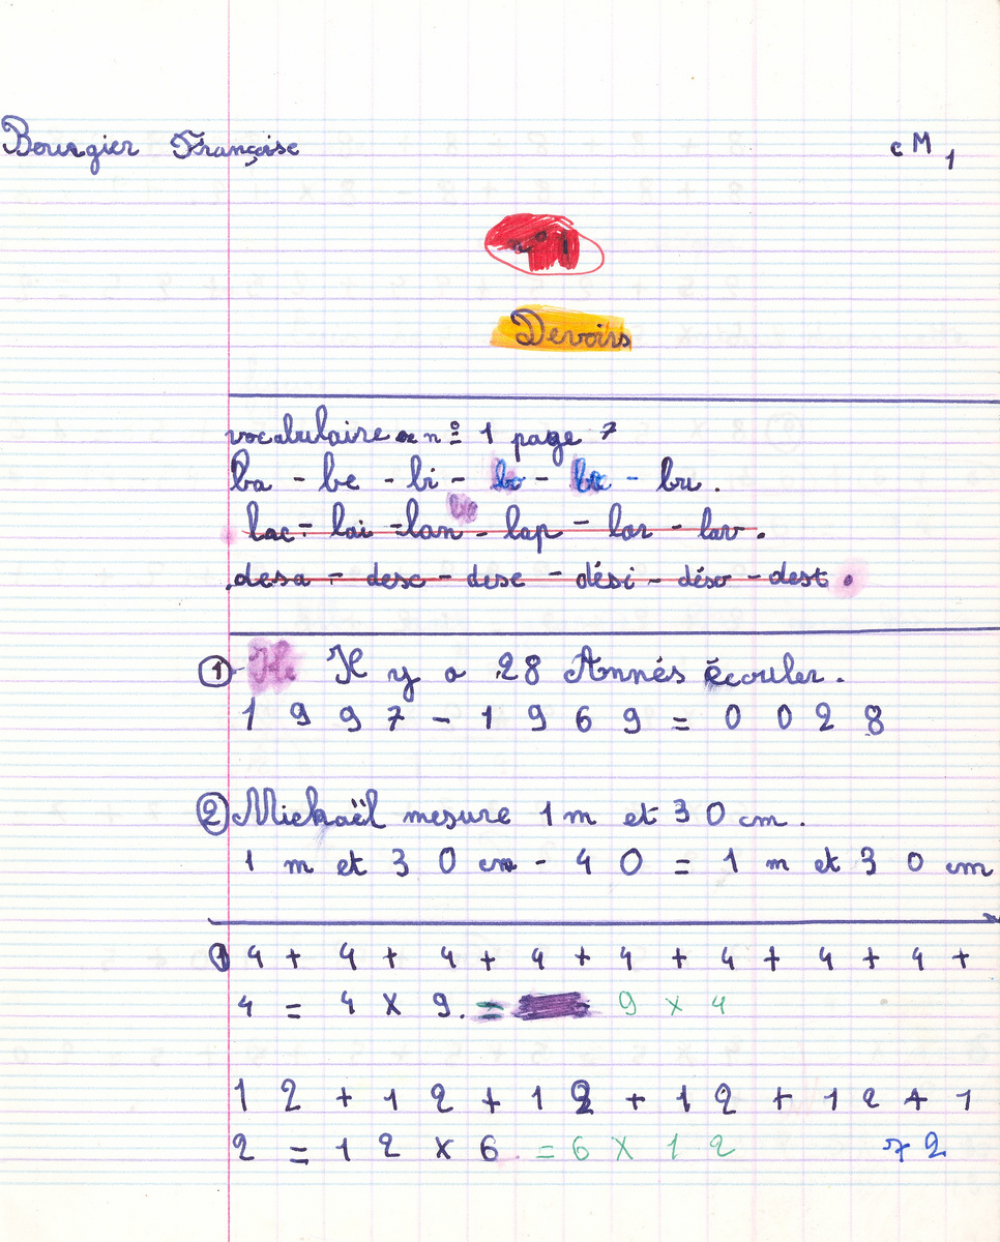 Bourgier Françoise cM1
n°1
Devoirs
vocabulaire ex n° 1 page 7
ba - be - bi - bo - br - bu.
lac - lai - lan - lap - lar - lav.
desa - desc - dese - dési - déso - dest.
① Il y a 28 Annés écouler.
1997 - 1969 = 0028
② Mickaël mesure 1 m et 30 cm.
1 m et 30 cm - 40 = 1 m et 30 cm
① 4 + 4 + 4 + 4 + 4 + 4 + 4 + 4 +
4 = 4 x 9. = 9 x 4
12 + 12 + 12 + 12 + 12 + 1
2 = 12 x 6 = 6 x 12 72